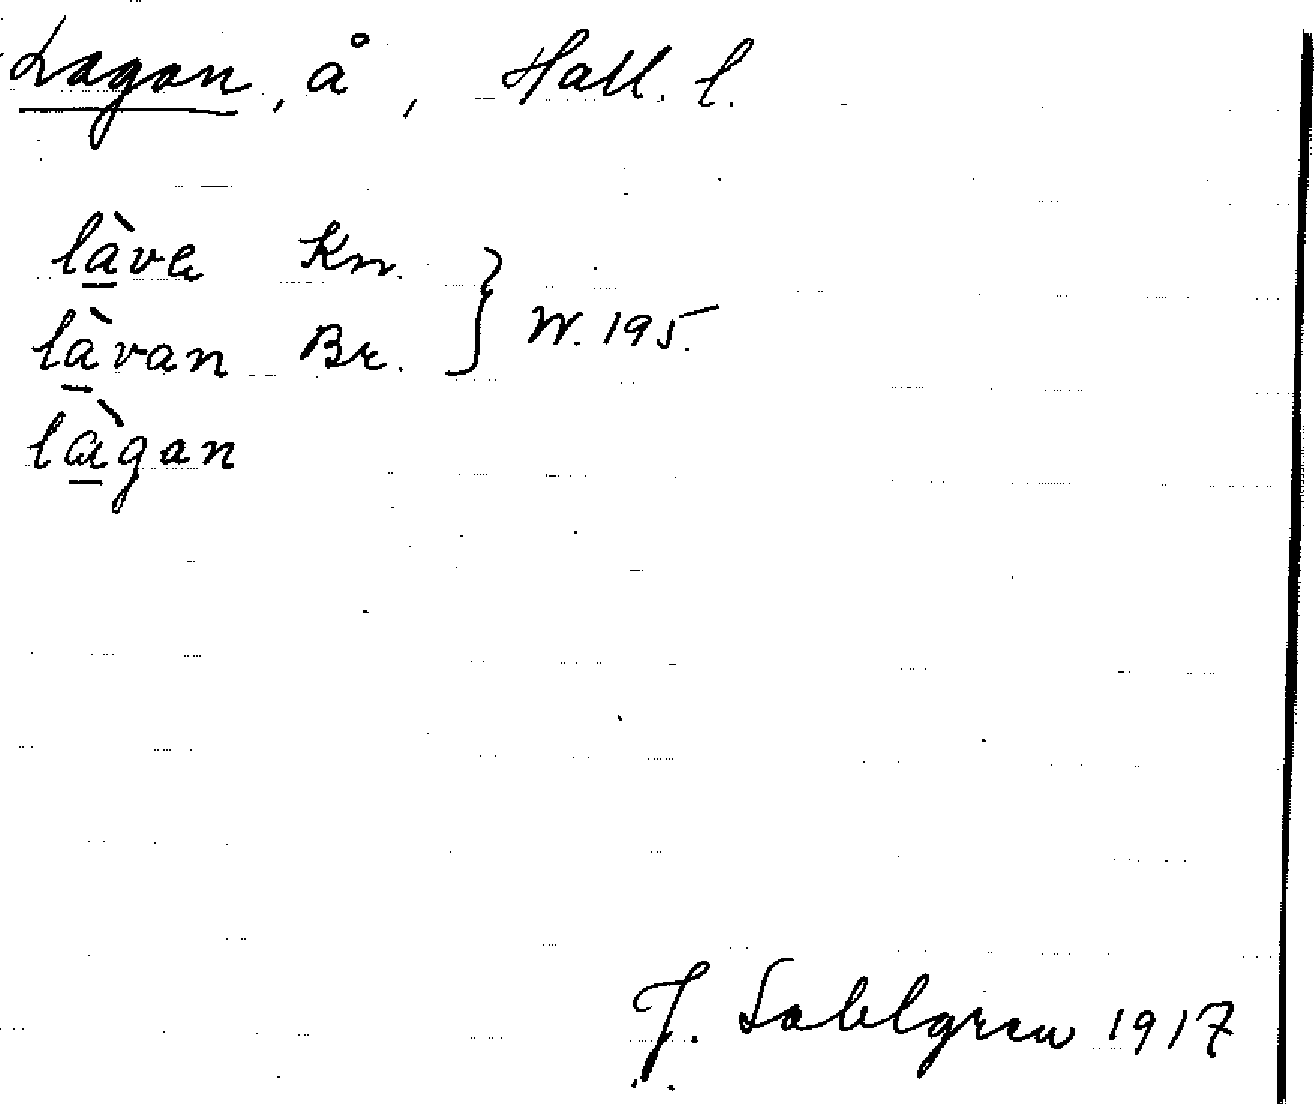 Lagan, å, Hall. l.
là̱ve Kn.
là̱van Br. } W. 195.
là̱gan
J. Sahlgren 1917